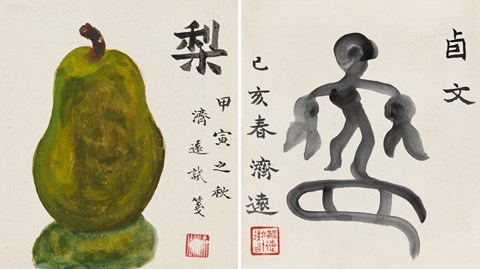 梨
甲寅之秋
濟遠試箋
卣文
己亥春濟遠